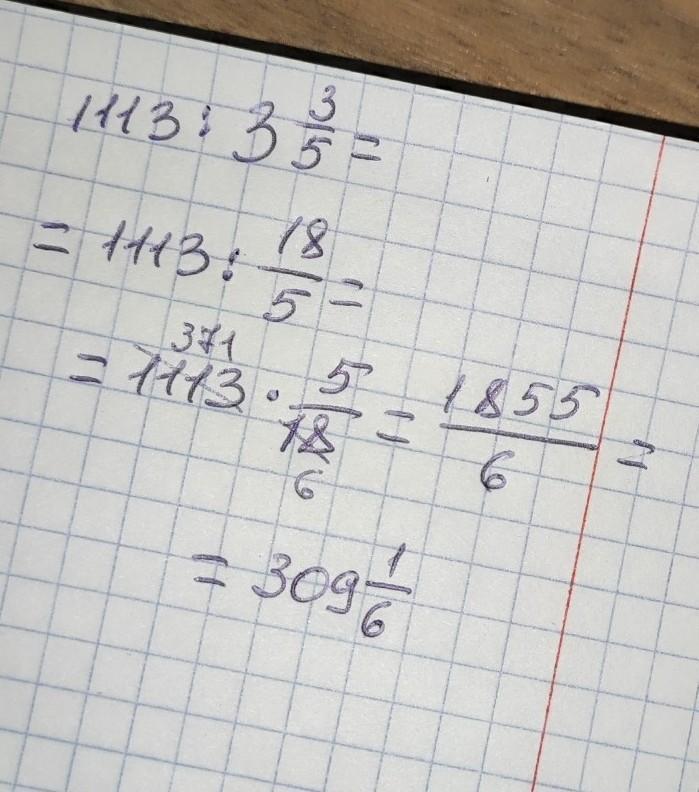 1113 : 3 3/5 =
= 1113 : 18/5 =
= 1113 371 · 5/18 6 = 1855/6 =
= 309 1/6